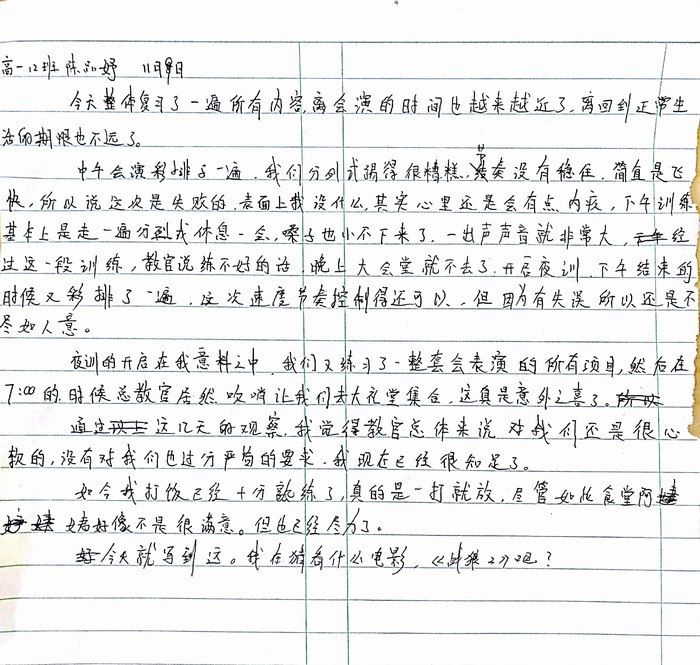 高一12班 陈品妤 11月9日
今天整体复习了一遍所有内容,离会演的时间也越来越近了,离回到正常生
活的期限也不远了。
中午会演彩排了一遍,我们分列式踢得很糟糕,节奏没有稳住,简直是飞
快,所以说这次是失败的,表面上我没什么,其实心里还是会有点内疚,下午训练
基本上是走一遍分列式休息一会,嗓子也小不下来了,一出声声音就非常大,经
过这一段训练,教官说练不好的话,晚上大会堂就不去了,开启夜训,下午结束的
时候又彩排了一遍,这次速度节奏控制得还可以,但因为有失误所以还是不
尽如人意。
夜训的开启在我意料之中,我们又练习了一整套会表演的所有项目,然后在
7:00的时候总教官居然吹哨让我们去大礼堂集合,这真是意外之喜了。
通过这几天的观察,我觉得教官总体来说对我们还是很心
软的,没有对我们也过分严苛的要求,我现在已经很知足了。
如今我打饭已经十分熟练了,真的是一打就放,尽管如此食堂阿
姨好像不是很满意。但也已经尽力了。
今天就写到这。我在猜看什么电影,《战狼2》吧?